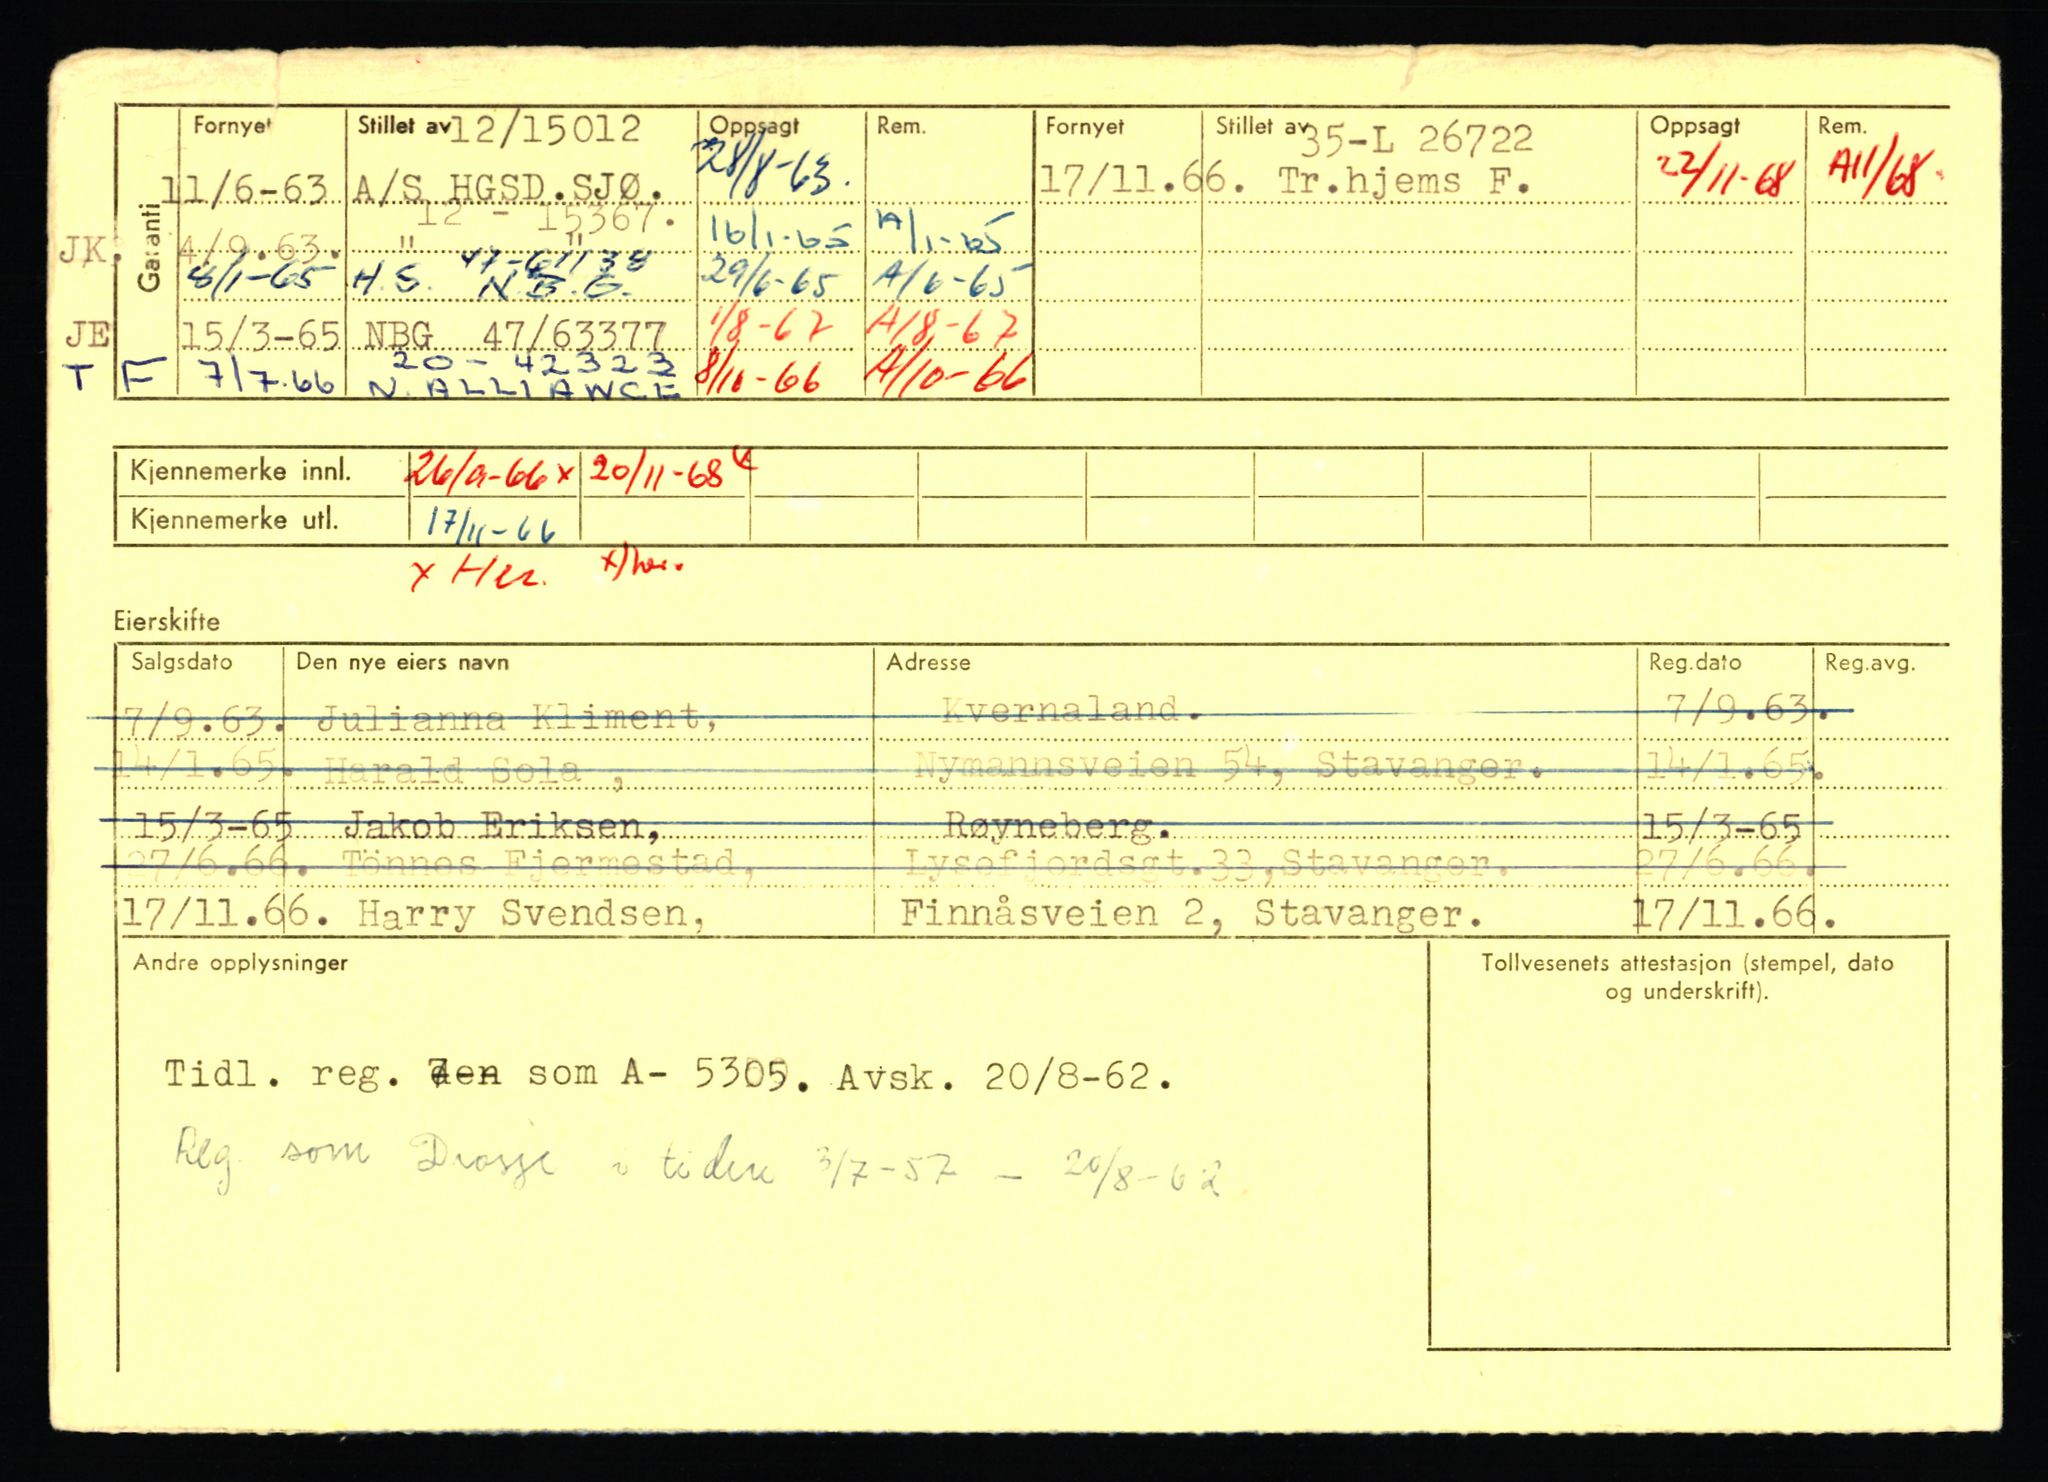 Fornyet Stillet av 12/15012 Oppsagt Rem. Fornyet Stillet av 35-L 26722 Oppsagt Rem.
Garanti
11/6-63 A/S HGSD.SJØ. 28/8-63. 17/11.66. Tr.hjems F. 22/11-68 A11/68.
12 - 15367.
JK. 4/9.63. " " 16/1-65 A/1-65
8/1-65 H.S. N.B.G. 29/6-65 A/6-65
JE 15/3-65 NBG 47/63377 1/8-67 A/8-67
20-42323
T F 7/7.66 N.ALLIANCE 8/10-66 A/10-66
Kjennemerke innl. 26/9-66 x 20/11-68 x
Kjennemerke utl. 17/11-66
x Her. x) her.
Eierskifte
Salgsdato Den nye eiers navn Adresse Reg.dato Reg.avg.
7/9.63. Julianna Kliment, Kvernaland. 7/9.63.
14/1.65. Harald Sola , Nymannsveien 54, Stavanger. 14/1.65.
15/3-65 Jakob Eriksen, Røyneberg. 15/3-65
27/6.66. Tönnes Fjermestad, Lysefjordsgt.33,Stavanger. 27/6.66.
17/11.66. Harry Svendsen, Finnåsveien 2, Stavanger. 17/11.66.
Andre opplysninger Tollvesenets attestasjon (stempel, dato
og underskrift).
Tidl. reg. den som A- 5305. Avsk. 20/8-62.
Reg. som Drosje i tiden 3/7-57 - 20/8-62